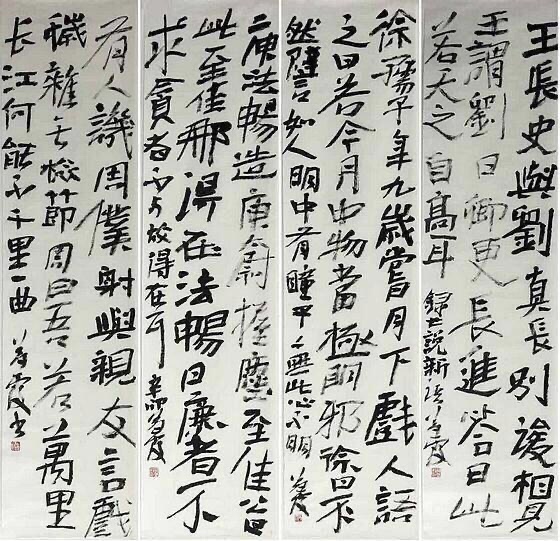 王長史與劉真長别後相見
王謂劉曰卿更長進答曰此
若天之自高耳 錄世說新語 霞
徐孺子年九歲嘗月下戲人語
之曰若令月中物當極明邪徐曰不
然譬如人眼中有瞳子无此必不明 霞
庾法暢造庾尉握麈至佳公
此至佳那得在法暢曰廉者不
求貪者不与故得在耳 辛卯 霞
有人譏周僕射與親友言戲
穢雜无檢節周曰吾若萬里
長江何能不千里一曲 霞书